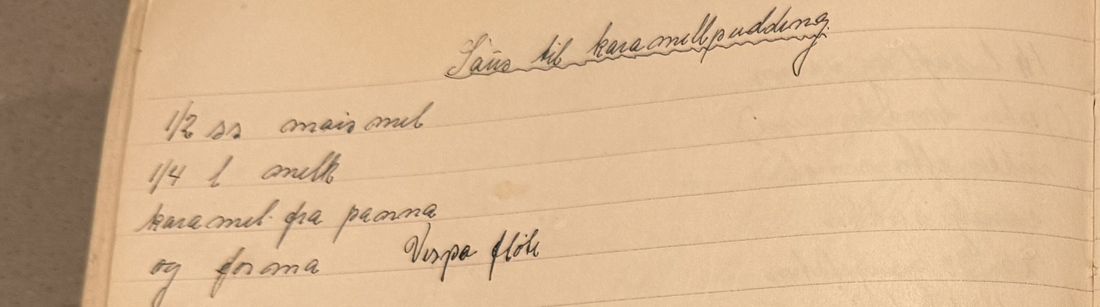 Saus til karamellpudding
1/2 ss maismel
1/4 l melk
karamel fra panna
og forma Vispa fløte